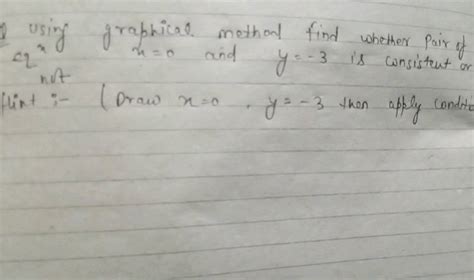 using graphical method find whether pair of
eqⁿ x=0 and y = -3 is consistent or
not
Hint :- (Draw x=0, y = -3 then apply conditio